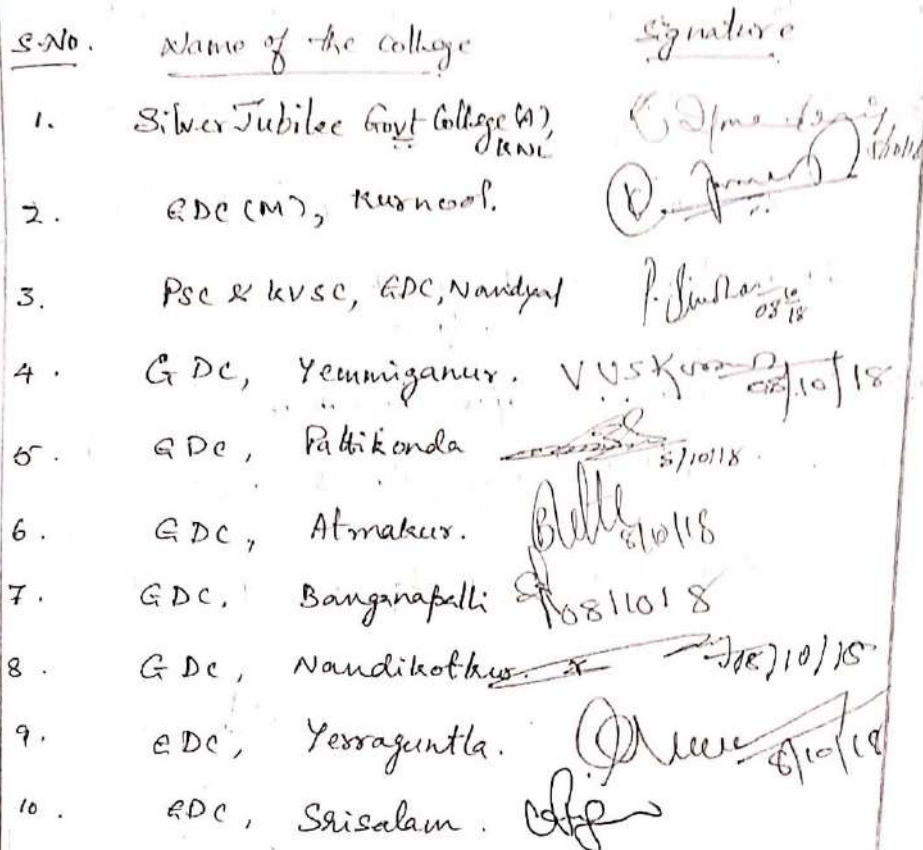 S.No. Name of the college Signature
1. Silver Jubilee Govt College (A), KNL 8/10/18
2. GDC (M), Kurnool.
3. PSC & KVSC, GDC, Nandyal 08/10/18
4. GDC, Yemmiganur. 08/10/18
5. GDC, Pattikonda 8/10/18.
6. GDC, Atmakur. 8/10/18
7. GDC, Banganapalli 08/10/18
8. GDC, Nandikotkur 08/10/18
9. GDC, Yerraguntla. 8/10/18
10. GDC, Srisalam.